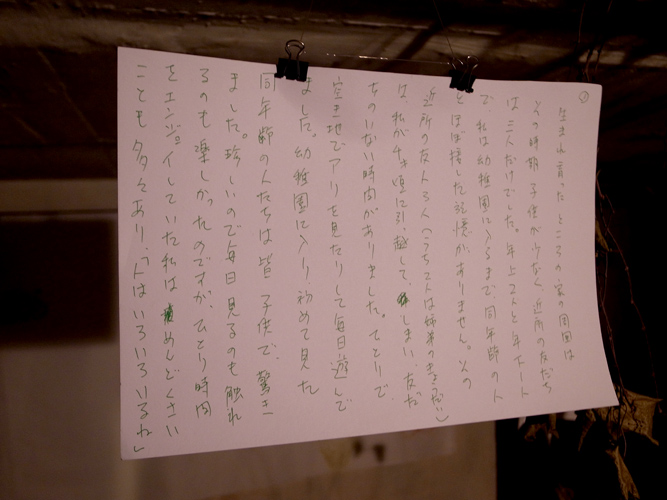 ①
生まれ育ったところの家の周囲は
その時期子供が少なく、近所の友だち
は三人だけでした。年上2人と年下一人
で、私は幼稚園に入るまで、同年齢の人
とほぼ接した記憶がありません。その
近所の友人3人(うち2人は姉弟のきょうだい)
は、私が4才頃に引っ越してしまい、友だ
ちのいない時間がありました。ひとりで
空き地でアリを見たりして毎日遊んで
ました。幼稚園に入り、初めて見た
同年齢の人たちは皆子供で、驚き
ました。珍しいので毎日見るのも触れ
るのも楽しかったのですが、ひとり時間
をエンジョイしていた私はめんどくさい
ことも多々あり、「人はいろいろいるね」